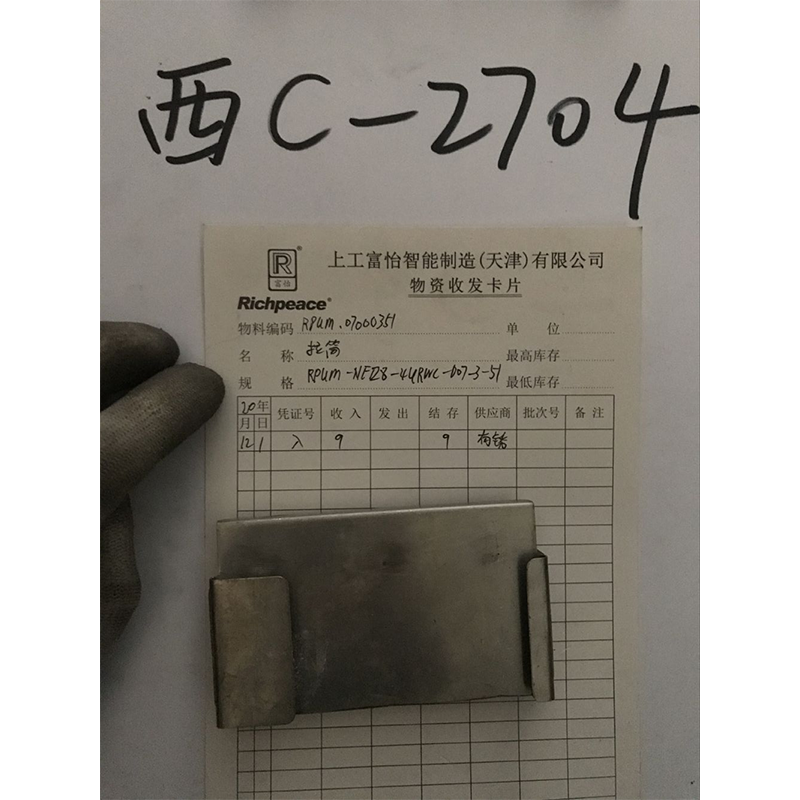 西C-2704
R®
富怡
上工富怡智能制造(天津)有限公司
物资收发卡片
Richpeace®
物料编码 RPUM.07000351 单 位
名 称 托筒 最高库存
规 格 RPUM-NFZ8-44RWC-D07-3-51 最低库存
20年 凭证号 收入 发出 结存 供应商 批次号 备注
月 日
12 1 入 9 9